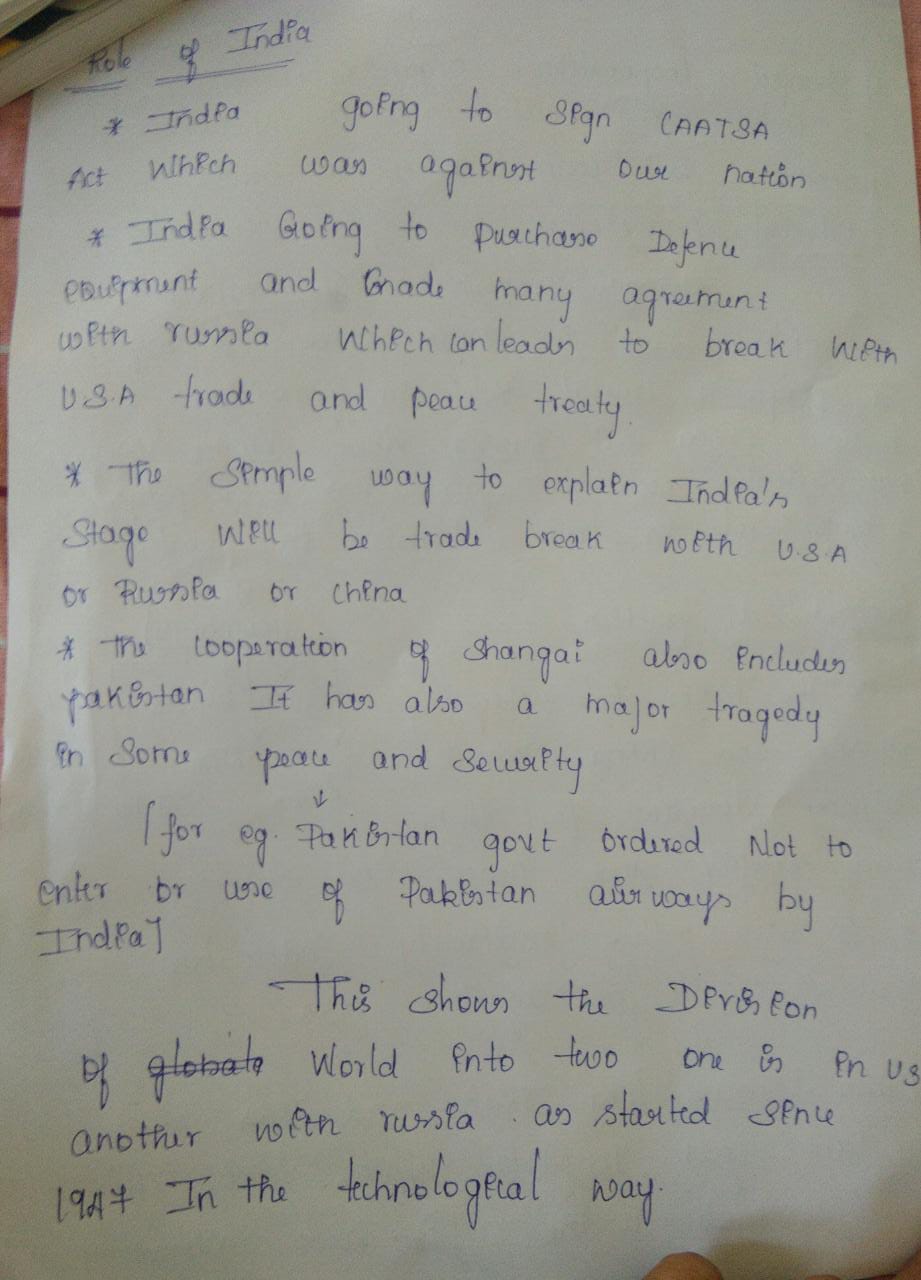 Role of India
* India going to sign CAATSA
Act Which was against our nation
* India Going to purchase Defence
equipment and made many agreement
with russia Which can leads to break with
U.S.A trade and peace treaty.
* The simple way to explain India's
Stage will be trade break with U.S.A
or Russia or china
* The cooperation of Shangai also includes
pakistan It has also a major tragedy
in Some peace and security
[for eg. Pakistan govt ordered Not to
enter or use of Pakistan airways by
India]
This shows the Division
of globale World into two one is in US
another with russia. as started since
1947 In the technological way.